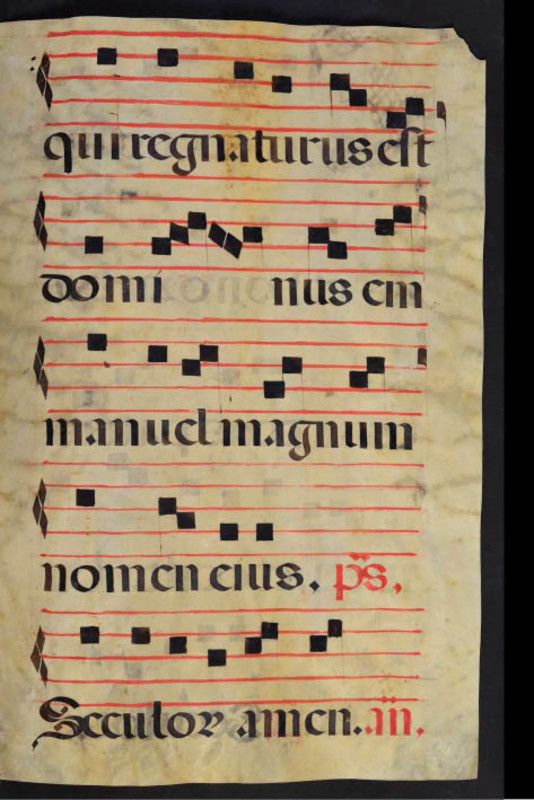 qui regnaturus est
domi nus em
manuel magnum
nomen eius. ps.
Seculor amen. an.